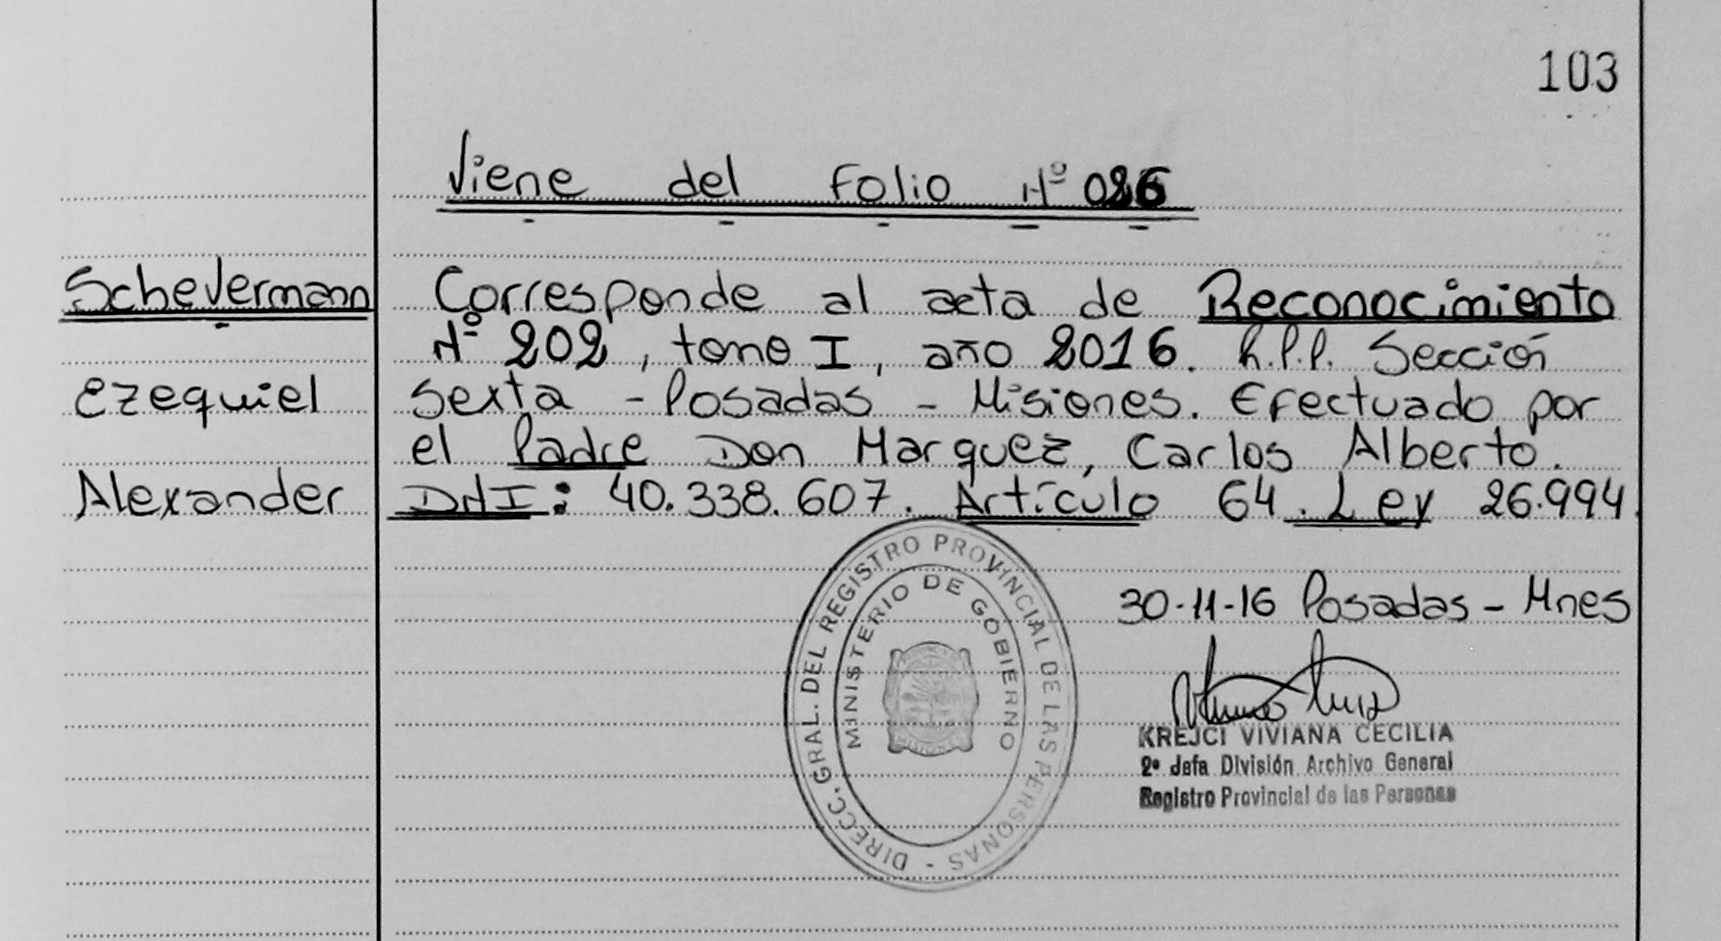 103
Viene del Folio Nº 026
Schevermann
Ezequiel
Alexander
Corresponde al acta de Reconocimiento
Nº 202, tomo I, año 2016. R.P.P. Sección
Sexta - Posadas - Misiones. Efectuado por
el Padre Don Marquez, Carlos Alberto.
DNI: 40.338.607. Artículo 64. Ley 26.994.
30-11-16 Posadas - Mnes
DIRECC. GRAL. DEL REGISTRO PROVINCIAL DE LAS PERSONAS -
MINISTERIO DE GOBIERNO
KREJCI VIVIANA CECILIA
2ª Jefa División Archivo General
Registro Provincial de las Personas